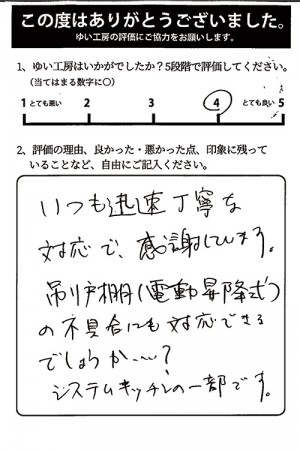 この度はありがとうございました。
ゆい工房の評価にご協力をお願いします。
1、ゆい工房はいかがでしたか？5段階で評価してください。
（当てはまる数字に○）
1 とても悪い 2 3 4 とても良い 5
2、評価の理由、良かった・悪かった点、印象に残って
いることなど、自由にご記入ください。
いつも迅速丁寧な
対応で、感謝しています。
吊り戸棚（電動昇降式）
の不具合にも対応できる
でしょうか…？
システムキッチンの一部です。